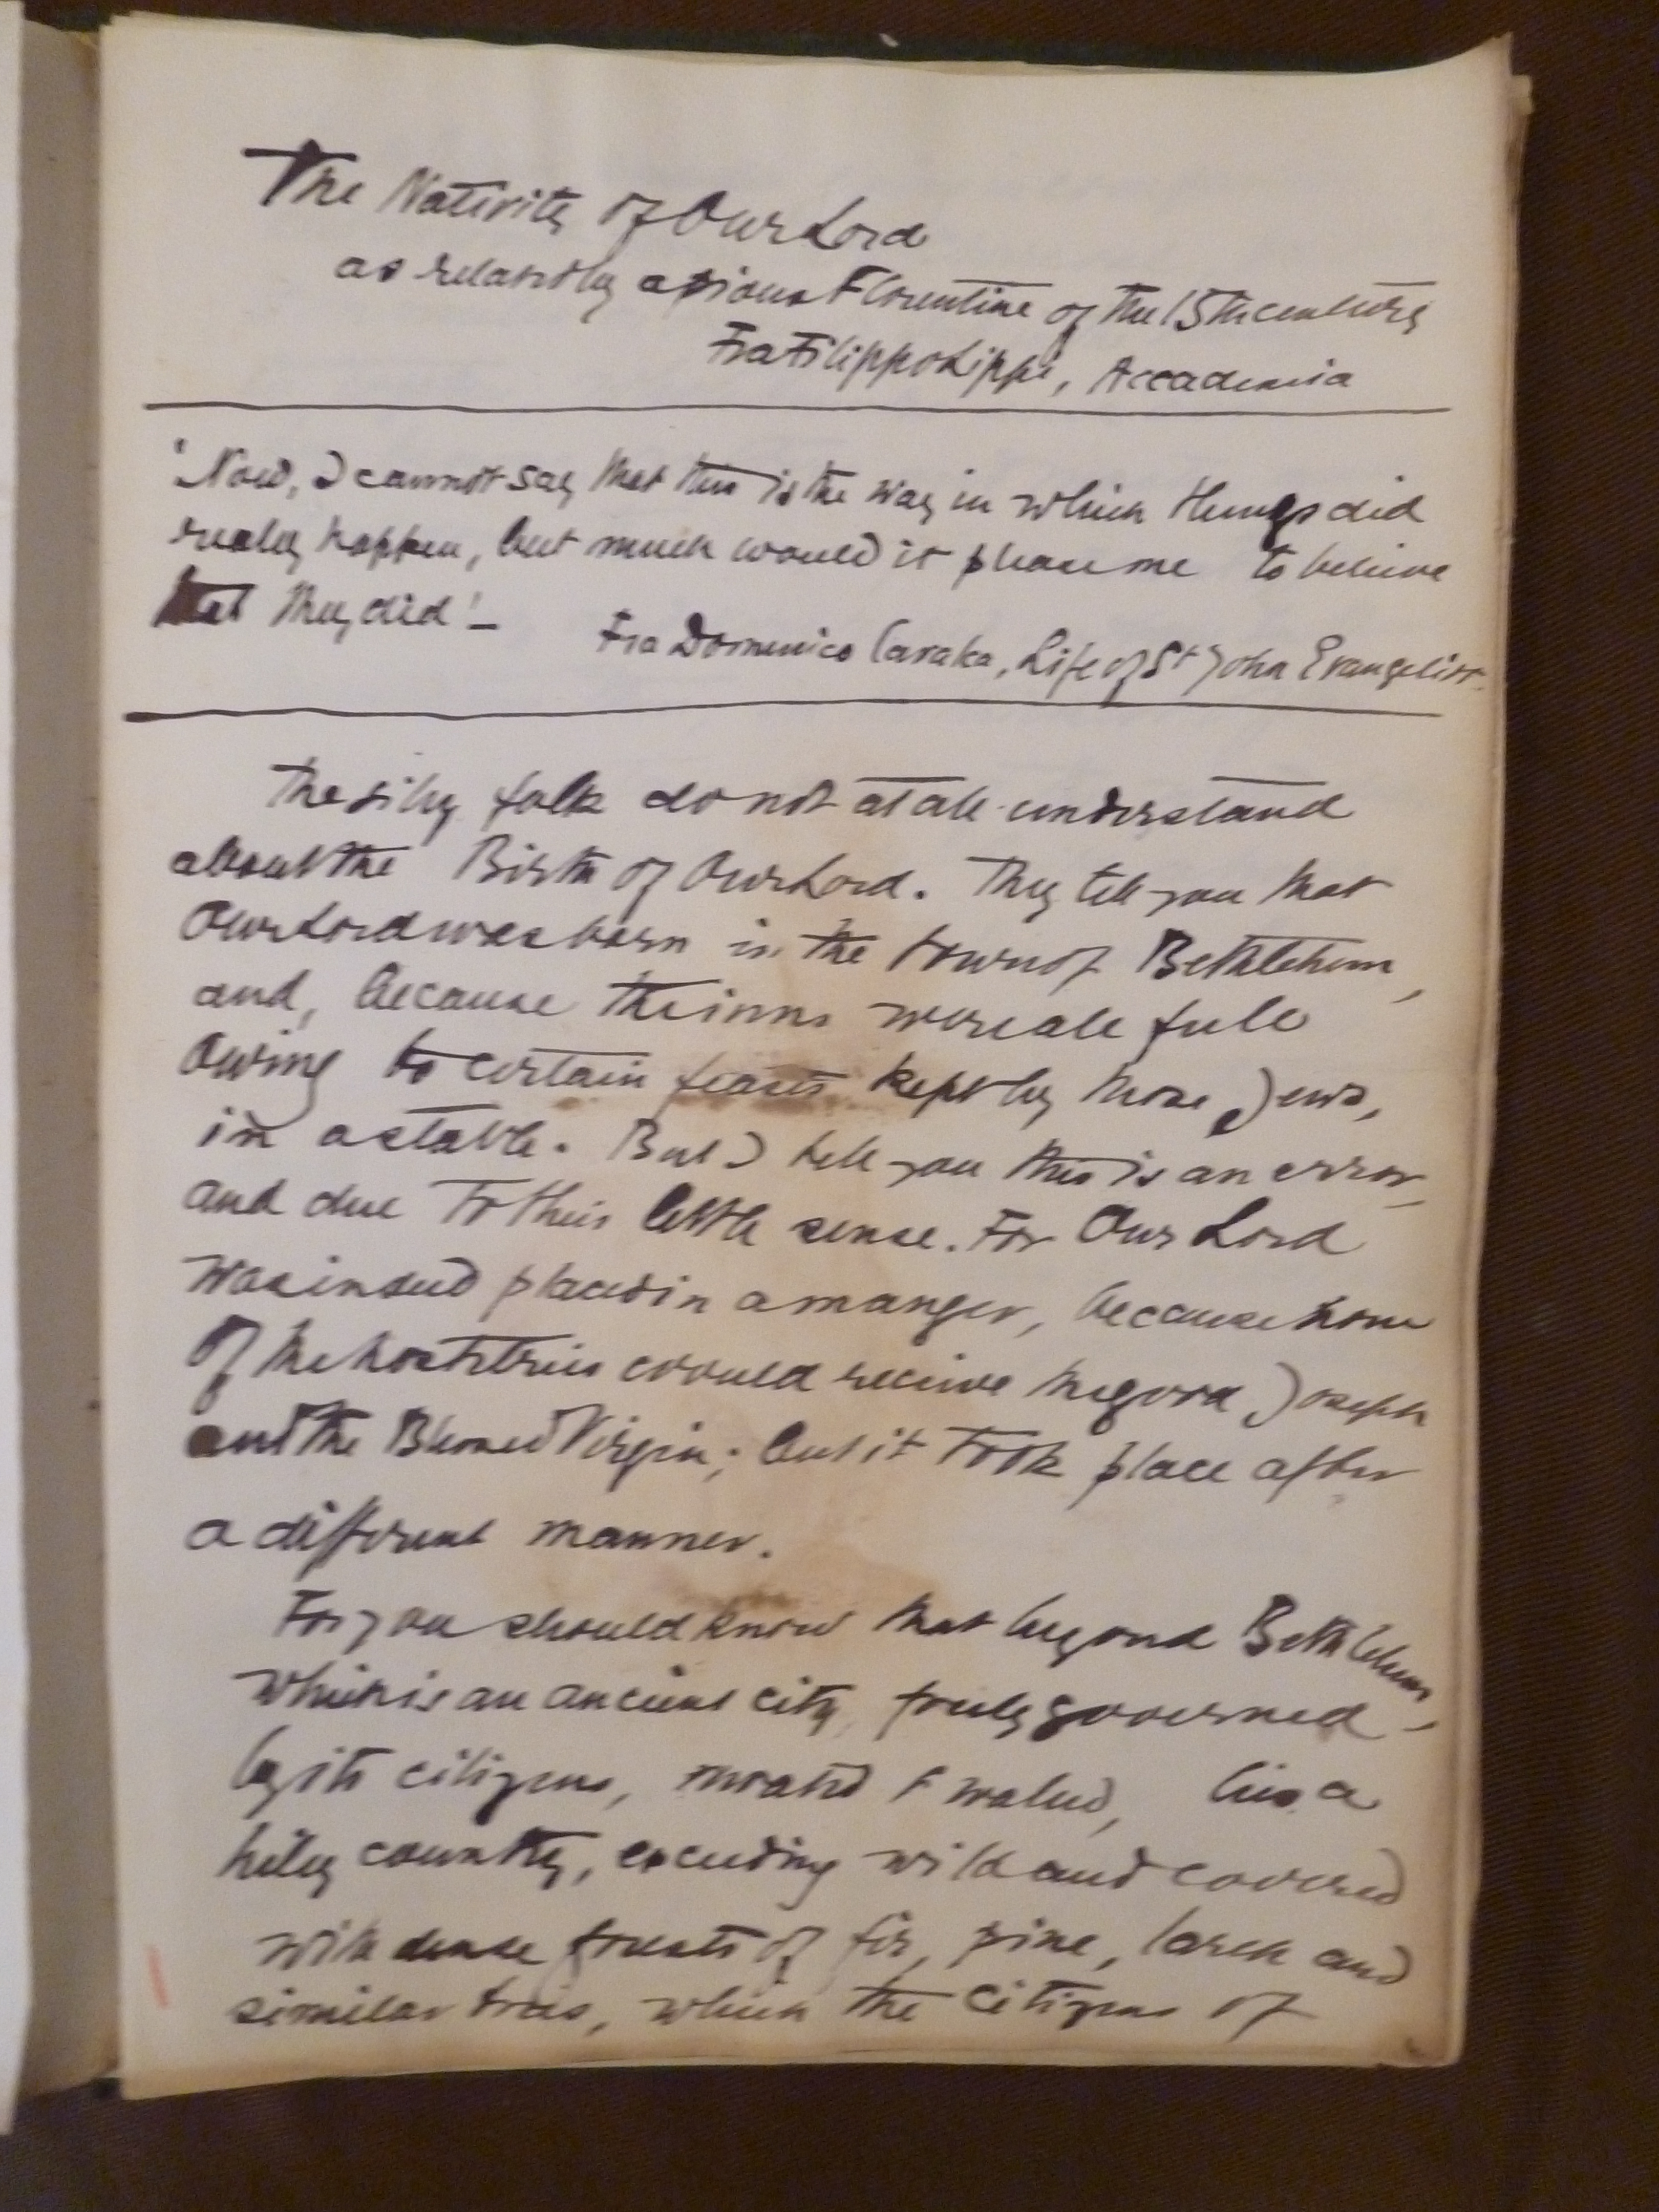 The Nativity of Our Lord
as related by a pious Florentine of the 15th century
Fra Filippo Lippi, Accademia
'Now, I cannot say that this is the way in which things did
really happen, but much would it please me to believe
that they did' –
Fra Domenico Cavalca, Life of St John Evangelist.
The silly folk do not at all understand
about the Birth of Our Lord. They tell you that
Our Lord was born in the town of Bethlehem,
and, because the inns were all full
owing to certain feasts kept by those Jews,
in a stable. But I tell you this is an error,
and due to their little sense. For Our Lord
was indeed placed in a manger, because none
of the hostelries would receive the good Joseph
and the Blessed Virgin; but it took place after
a different manner.
For you should know that beyond Bethlehem,
which is an ancient city, freely governed
by its citizens, moated & walled, lies a
hilly country, exceeding wild and covered
with dense forests of fir, pine, larch and
similar trees, which the citizens of